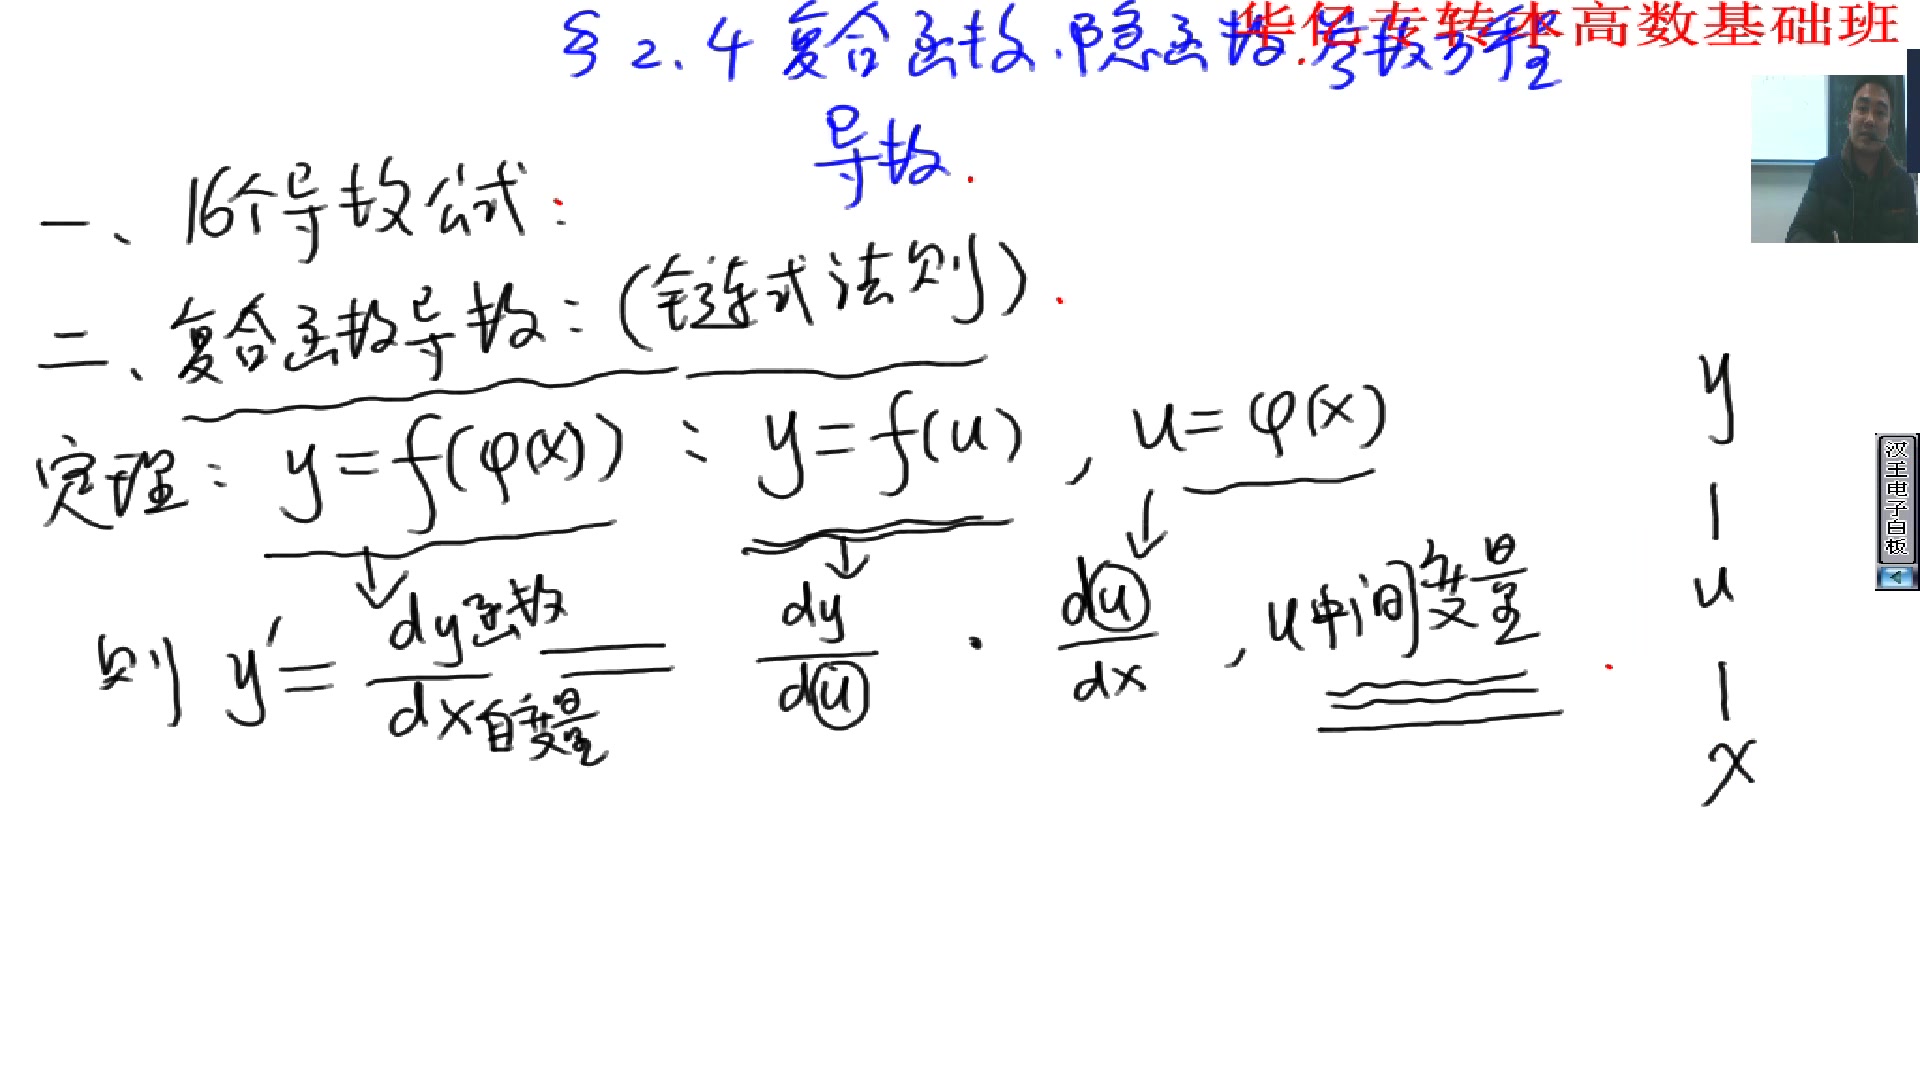 华亿专转本高数基础班
§ 2.4 复合函数.隐函数.参数方程
导数.
一、16个导数公式:
二、复合函数导数:(链式法则).
定理: y=f(φ(x)) : y=f(u) , u=φ(x)
则 y′= dy函数/dx自变量 = dy/du · du/dx , u中间变量.
y
|
u
|
x
汉王电子白板